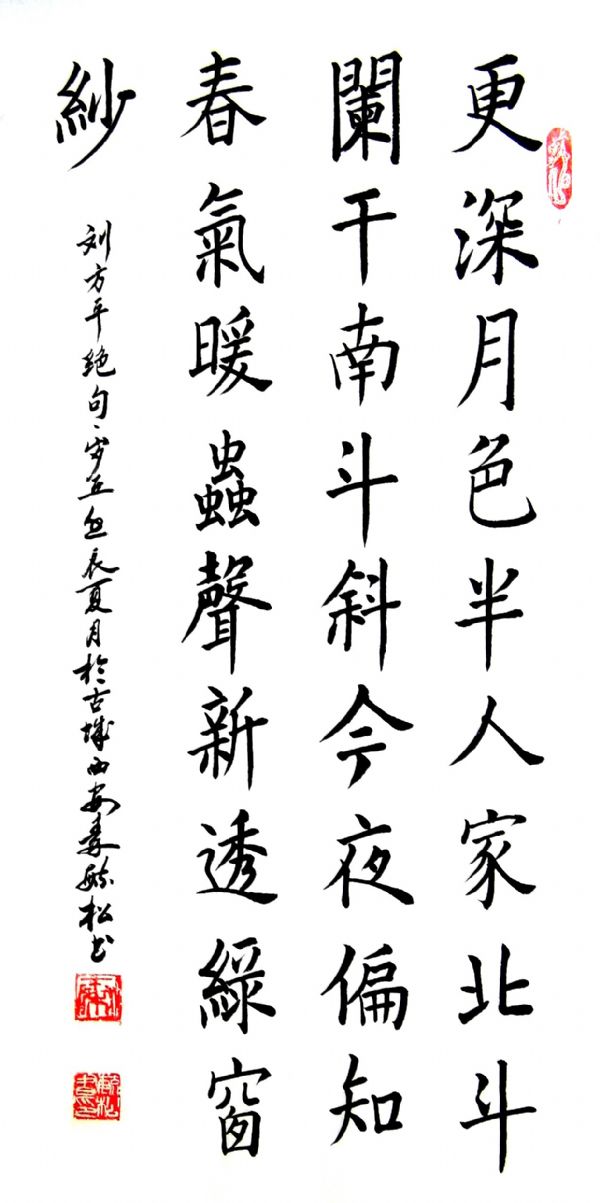 更深月色半人家北斗
闌干南斗斜今夜偏知
春氣暖蟲聲新透綠窗
紗
刘方平絕句、岁辰夏月於古城西安毓松书